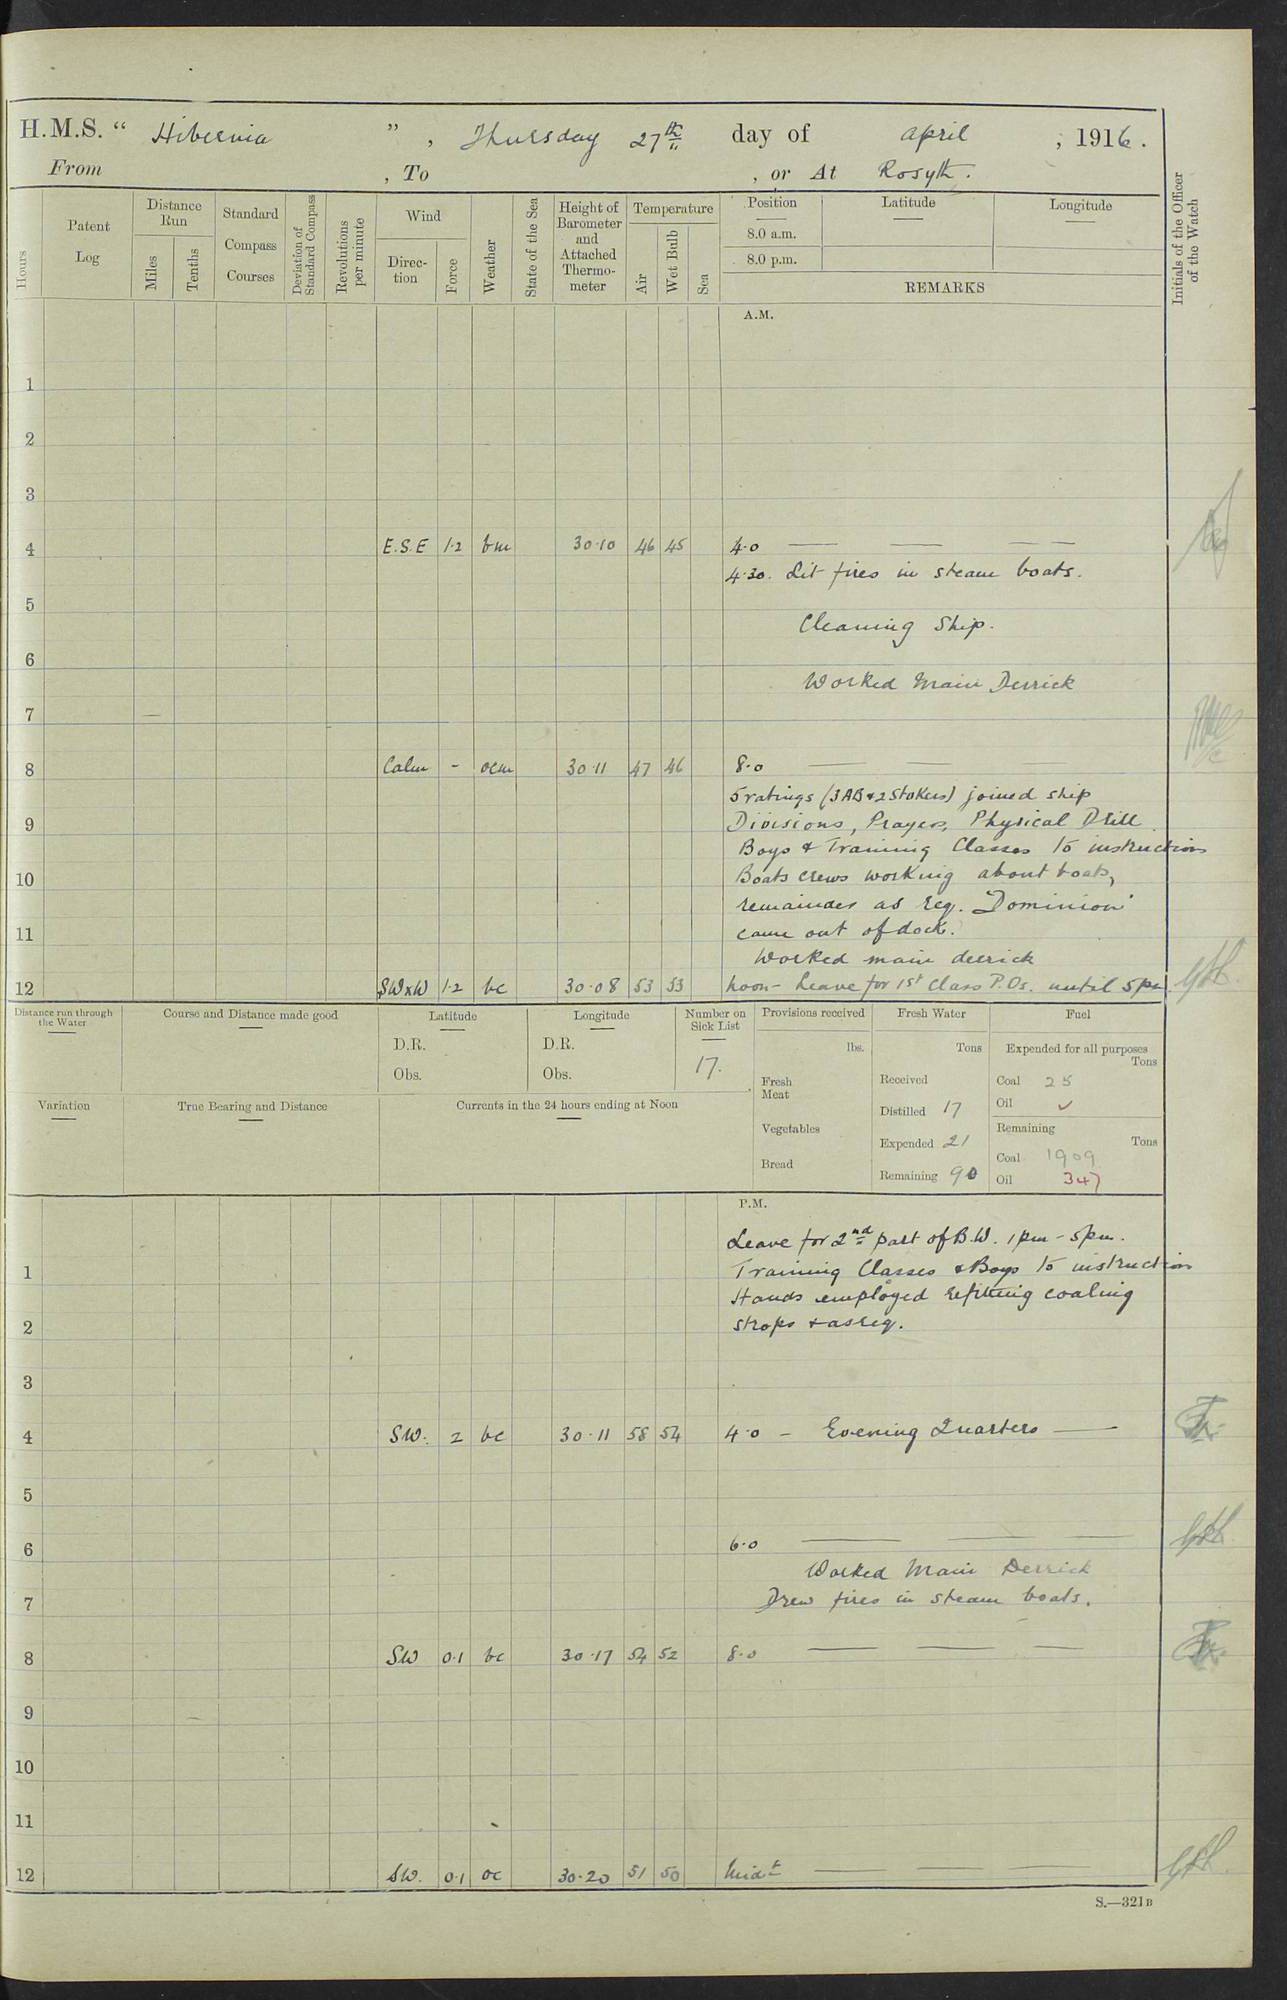 H.M.S. " Hibernia " , Thursday 27th day of April , 1916.
From , To , or At Rosyth.
Hours
Patent Log
Distance Run
Miles
Tenths
Standard Compass Courses
Deviation of Standard Compass
Revolutions per minute
Wind
Direc-tion
Force
Weather
State of the Sea
Height of Barometer and Attached Thermo-meter
Temperature
Air
Wet Bulb
Sea
Position
8.0 a.m.
8.0 p.m.
Latitude
Longitude
REMARKS
Initials of the Officer of the Watch
A.M.
1
2
3
4 E.S.E 1·2 bm 30·10 46 45 4·0 — — — —
4·30. Lit fires in steam boats.
5
Cleaning Ship.
6
Worked Main Derrick
7
8 Calm - ocm 30·11 47 46 8·0 — — —
5 ratings (3 AB & 2 Stokers) joined ship
9 Divisions, Prayers, Physical Drill.
Boys & Training Classes to instruction
10 Boats crews working about boats,
remainder as req. "Dominion"
11 came out of dock.
Worked main derrick
12 SWxW 1·2 bc 30·08 53 53 Noon - Leave for 1st Class P.Os. until 5 pm.
Distance run through the Water
Course and Distance made good
Latitude
D.R.
Obs.
Longitude
D.R.
Obs.
Number on Sick List
17.
Provisions received
lbs.
Fresh Meat
Vegetables
Bread
Fresh Water
Tons
Received
Distilled 17
Expended 21
Remaining 90
Fuel
Expended for all purposes
Tons
Coal 25
Oil ✓
Remaining
Tons
Coal 1909
Oil 347
Variation
True Bearing and Distance
Currents in the 24 hours ending at Noon
P.M.
Leave for 2nd part of B.W. 1 pm - 5 pm.
1 Training Classes & Boys to instruction
Hands employed refitting coaling
2 strops & as req.
3
4 SW. 2 bc 30·11 58 54 4·0 - Evening Quarters —
5
6 6·0 — — —
Worked Main Derrick
7 Drew fires in steam boats.
8 SW 0·1 bc 30·17 54 52 8·0 — — —
9
10
11
12 SW. 0·1 oc 30·20 51 50 Midt — — —
S.—321B